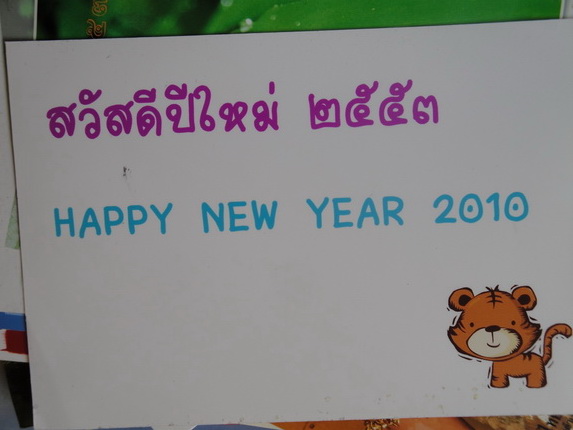 สวัสดีปีใหม่ ๒๕๕๓
HAPPY NEW YEAR 2010